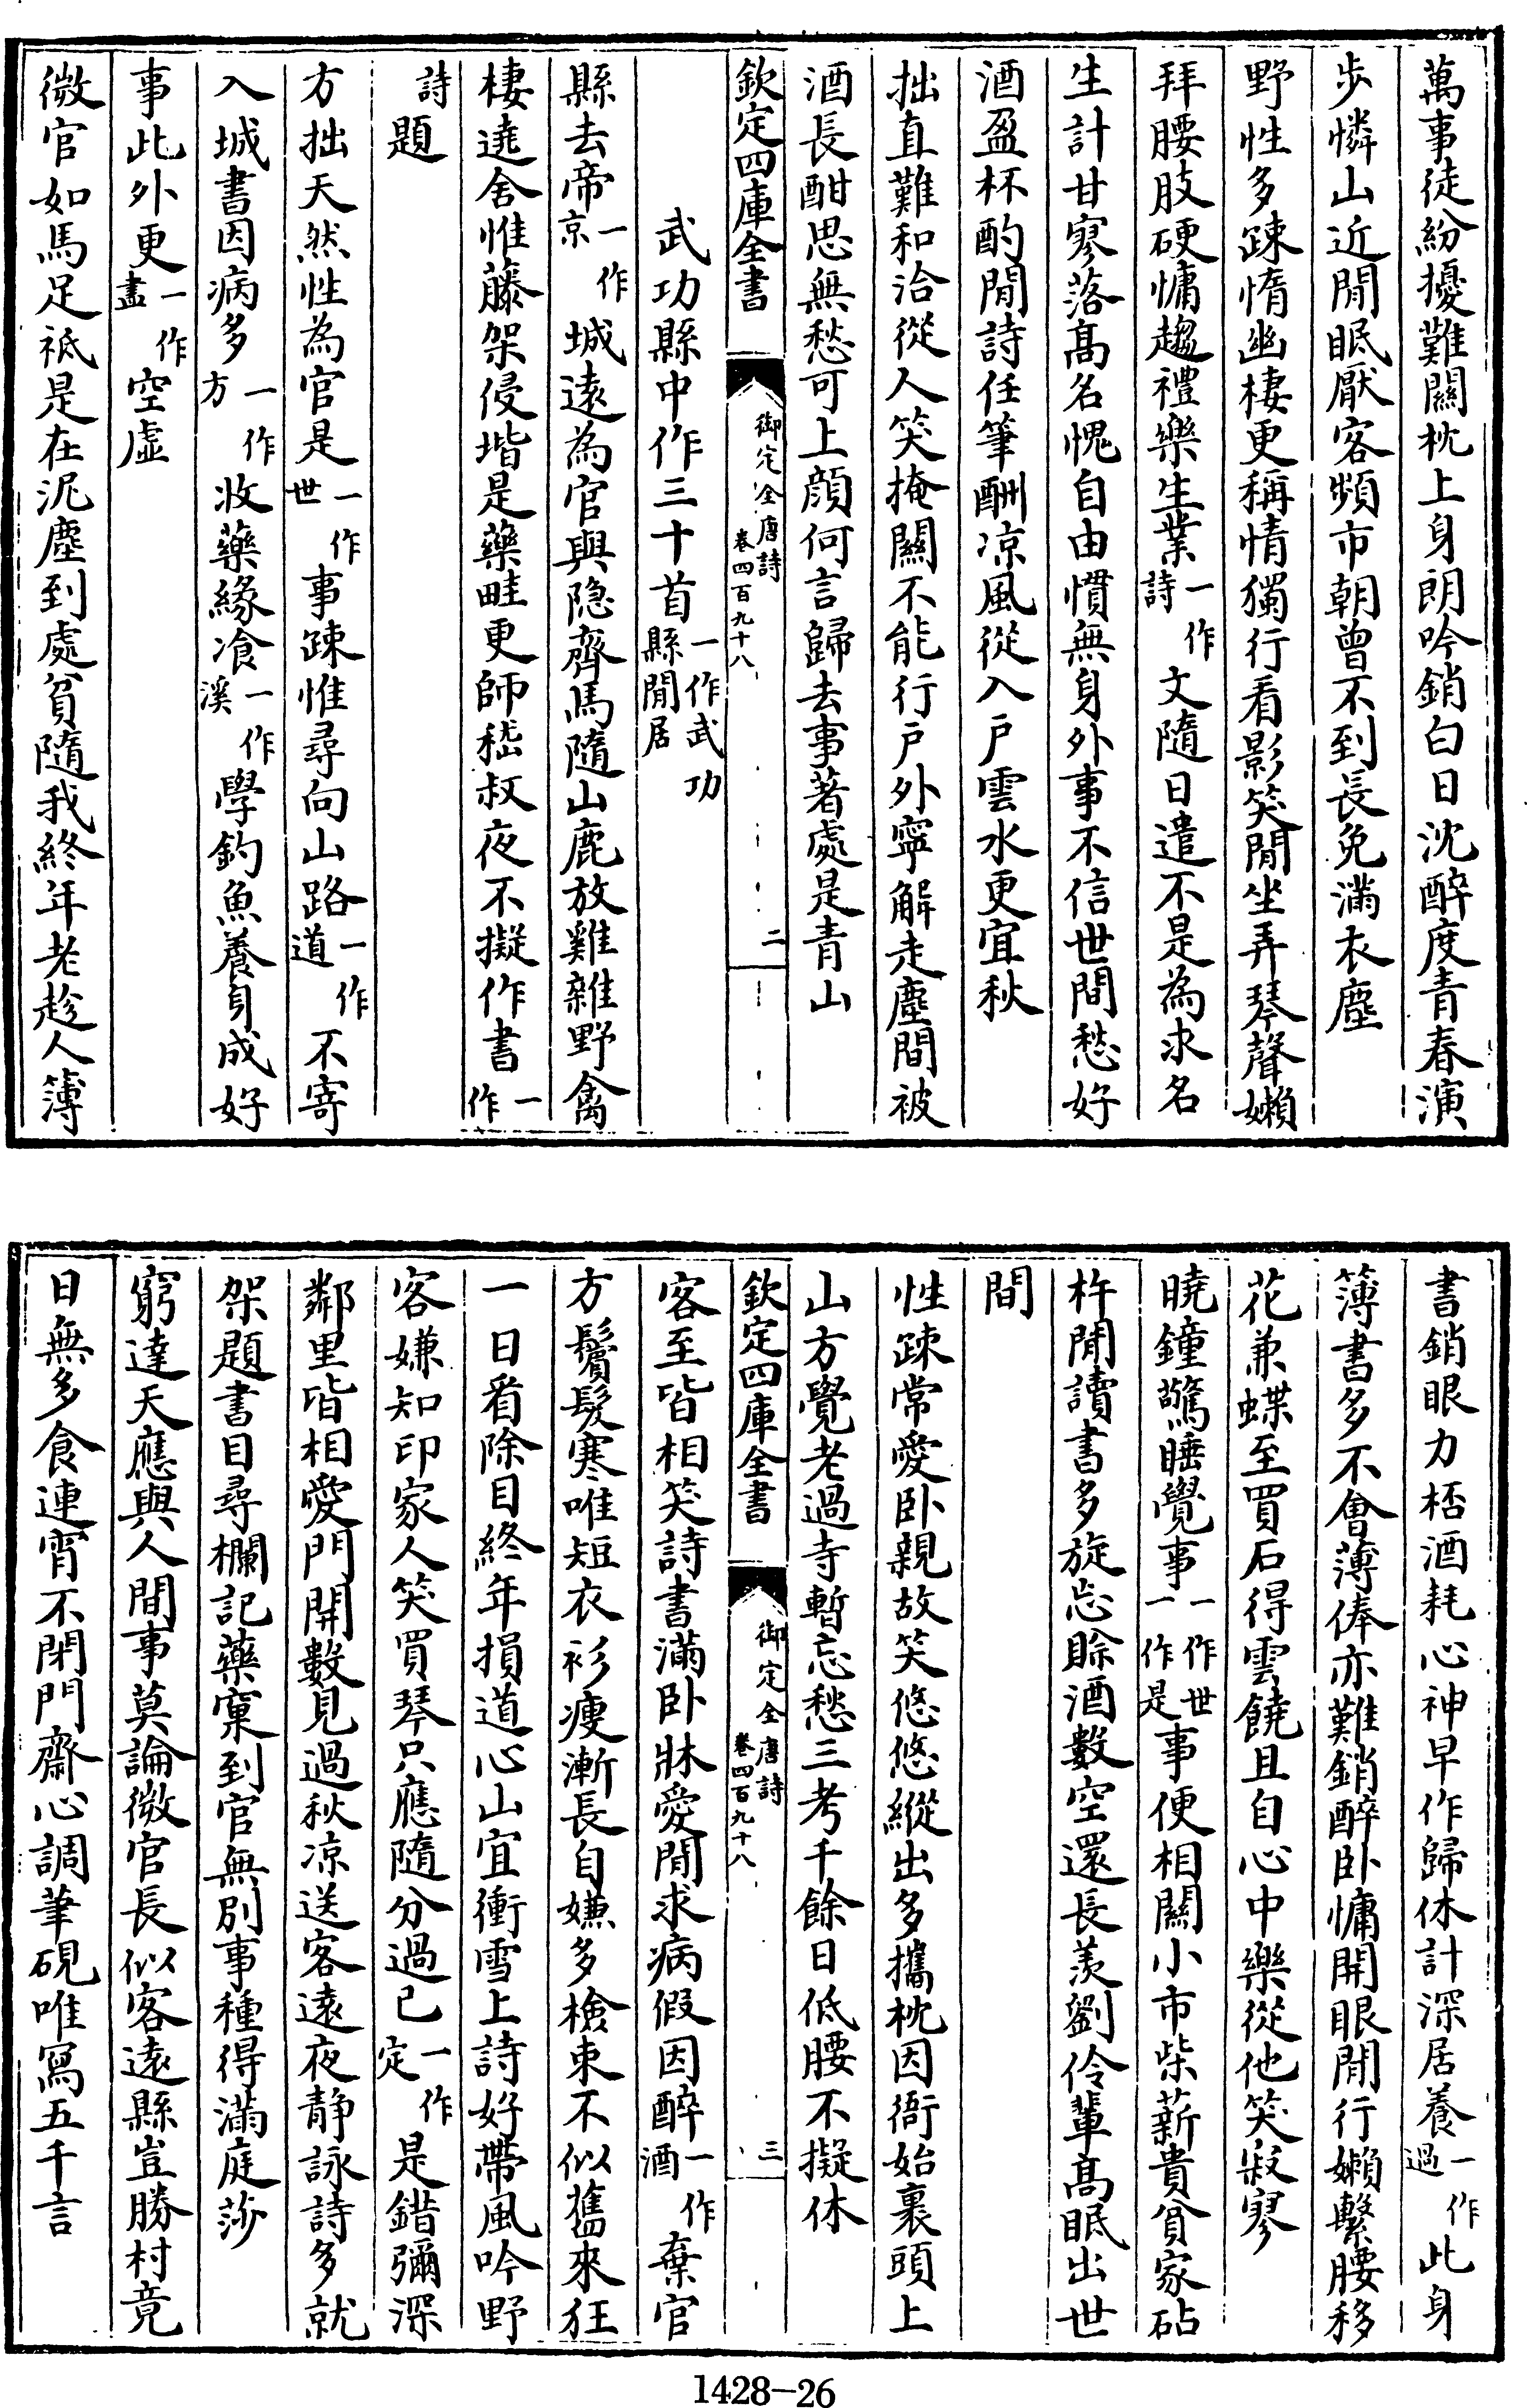 萬事徒紛擾難關枕上身朗吟銷白日沈醉度青春演
步憐山近閒眠厭客頻市朝曾不到長免滿衣塵
野性多疎惰幽棲更稱情獨行看影笑閒坐弄琴聲嬾
拜腰肢硬慵趨禮樂生業一作詩文隨日遣不是為求名
生計甘寥落高名愧自由慣無身外事不信世間愁好
酒盈杯酌閒詩任筆酬凉風從入戶雲水更宜秋
拙直難和洽從人笑掩關不能行戶外寧解走塵間被
酒長酣思無愁可上顔何言歸去事著處是青山
欽定四庫全書 御定全唐詩 卷四百九十八 二
武功縣中作三十首一作武功縣閒居
縣去帝一作京城遠為官與隐齊馬隨山鹿放雞雜野禽
棲遶舍惟藤架侵堦是藥畦更師嵇叔夜不擬作書一作
詩題
方拙天然性為官是一作世事疎惟尋向山路一作道不寄
入城書因病多一作方收藥緣飡一作溪學釣魚養身成好
事此外更一作盡空虛
微官如馬足祇是在泥塵到處貧隨我終年老趁人簿
書銷眼力桮酒耗心神早作歸休計深居養一作過此身
簿書多不會薄俸亦難銷醉卧慵開眼閒行嬾繫腰移
花兼蝶至買石得雲饒且自心中樂從他笑寂寥
曉鐘驚睡覺事一作世一作是事便相關小市柴薪貴貧家砧
杵閒讀書多旋忘賒酒數空還長羨劉伶輩高眠出世
間
性疎常愛卧親故笑悠悠縱出多攜枕因衙始裹頭上
山方覺老過寺暫忘愁三考千餘日低腰不擬休
欽定四庫全書 御定全唐詩 卷四百九十八 三
客至皆相笑詩書滿卧牀愛閒求病假因醉一作酒棄官
方鬢髮寒唯短衣衫瘦漸長自嫌多檢束不似舊來狂
一日看除目終年損道心山宜衝雪上詩好帶風吟野
客嫌知印家人笑買琴只應隨分過已一作定是錯彌深
鄰里皆相愛門開數見過秋凉送客遠夜静詠詩多就
架題書目尋欄記藥窠到官無別事種得滿庭莎
窮達天應與人間事莫論微官長似客遠縣豈勝村竟
日無多食連宵不閉門齋心調筆硯唯寫五千言
1428-26